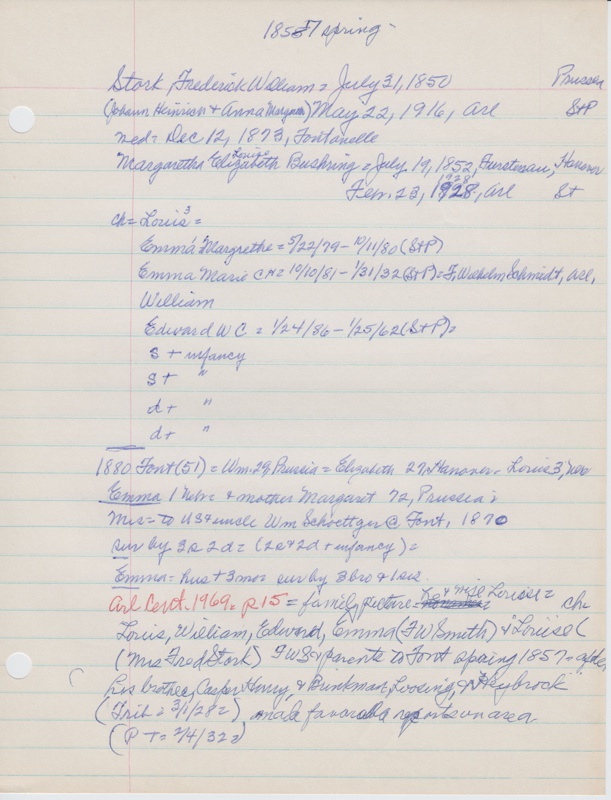 1857 spring -
Stork, Frederick William = July 31, 1850 Prussia
(Johann Heinrich & Anna Margaret) May 22, 1916, Arl St P
med = Dec 12, 1873, Fontanelle
Margaretha Elizabeth Louise Bushring = July 19, 1852, Furstenau, Hanover
Feb. 23, 1928, Arl St
1928
ch = Louis 3 =
Emma Margrethe = 5/22/79 - 10/11/80 (St P)
Emma Marie CH = 10/10/81 - 1/31/32 (St P) = F. Wilhelm Schmidt, Arl,
William
Edward W C = 1/24/86 - 1/25/62 (St P) =
s + infancy
s + "
d + "
d + "
1880 Font (51) = Wm. 29, Prussia = Elizabeth 27, Hanover - Louis 3, Neb
Emma 1 Nebr & mother Margaret 72, Prussia;
Mrs = to US & uncle Wm Schoettger @ Font, 1870
sur by 3 s 2 d = (2 s & 2 d + infancy) =
Emma = hus + 3 mo = sur by 3 bro & 1 sis
Arl Cent. 1969 = p 15 = family picture = he & wife Louise = ch
Louis, William, Edward, Emma (F W Smith) & Louise (
(Mrs Fred Stork) F W S & parents to Font spring 1857 = after
his brother, Casper Henry, & Brinkman, Loosing, & "Heybrock"
(Trib = 3/1/28 =) made favorable reports on area
(P T = 2/4/32 =)